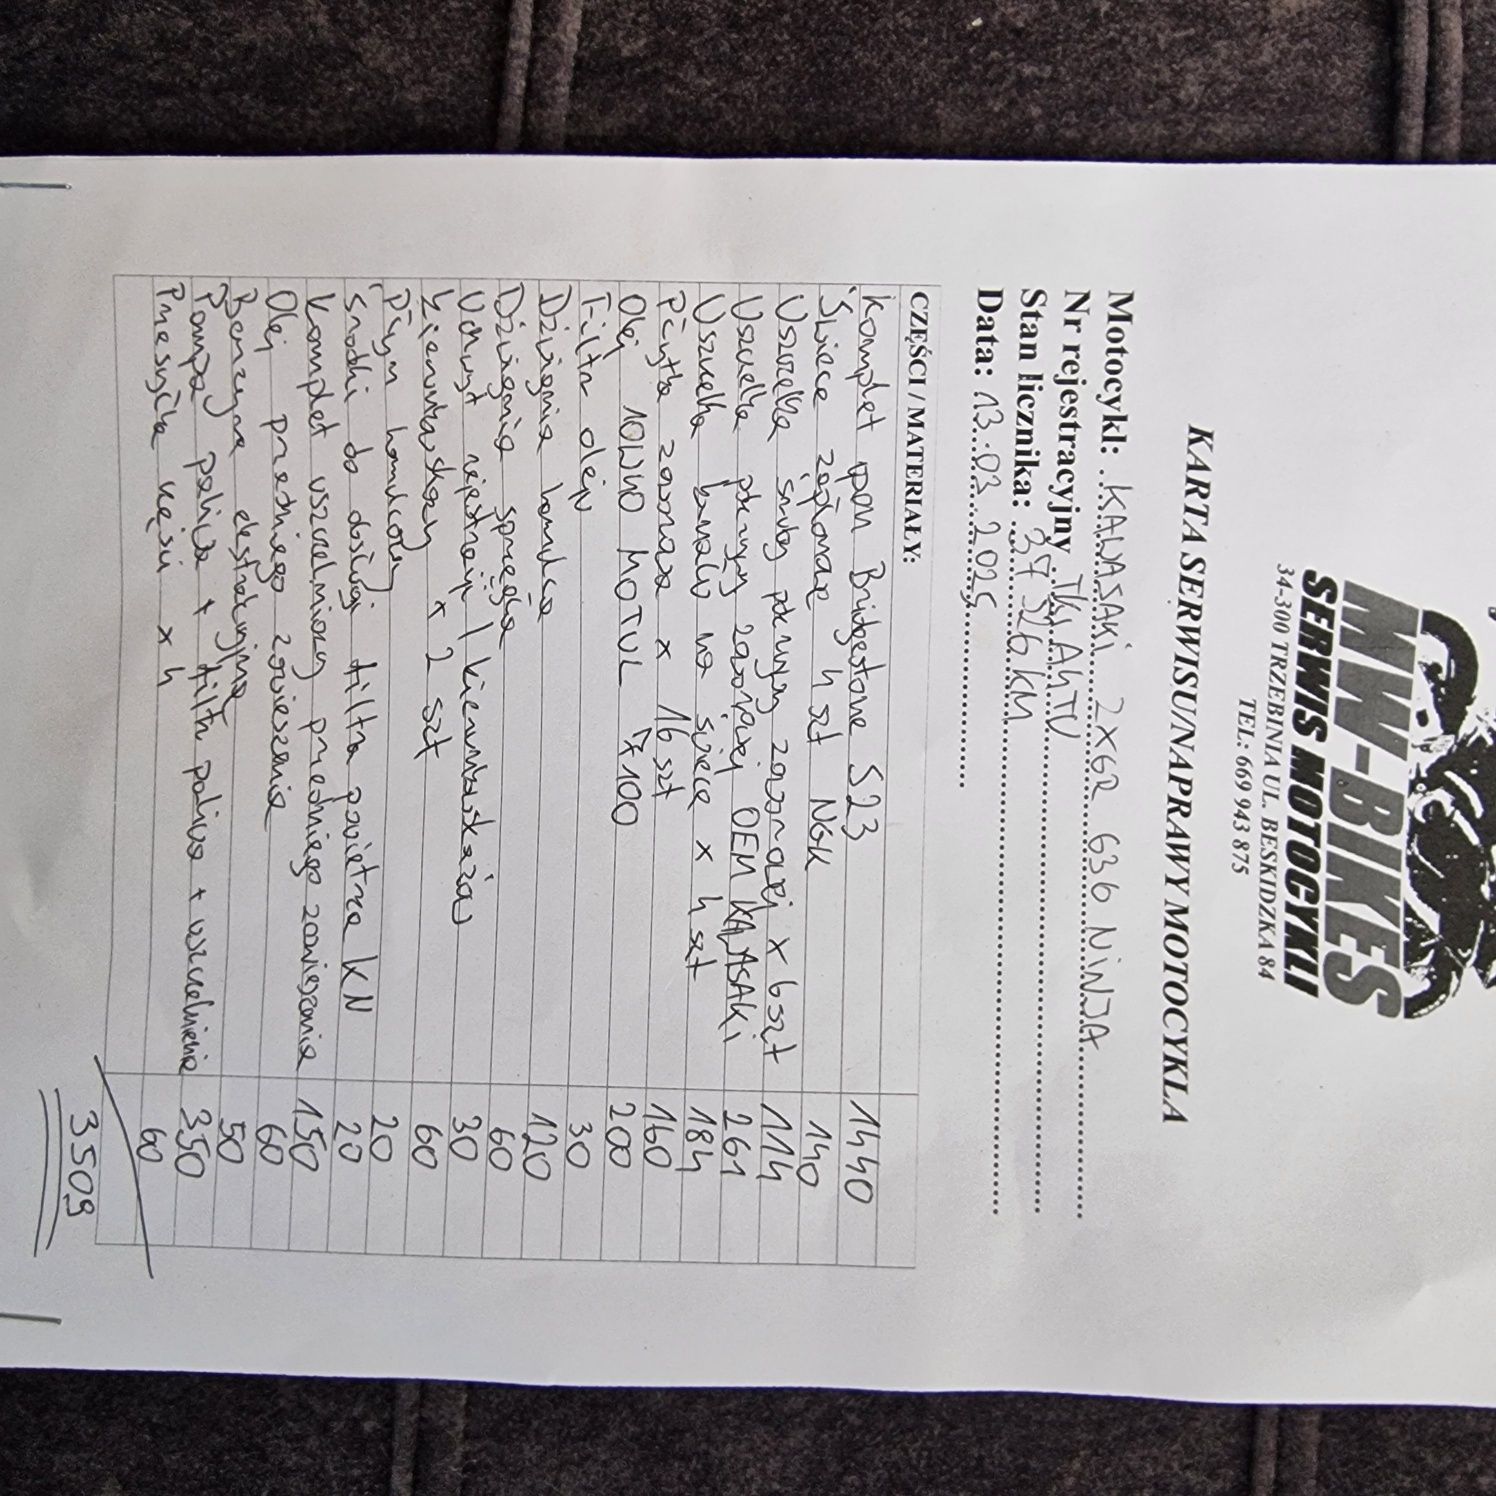 MW-BIKES
SERWIS MOTOCYKLI
34-300 TRZEBINIA UL. BESKIDZKA 84
TEL: 669 943 875
KARTA SERWISUNAPRAWY MOTOCYKLA
Motocykl: KAWASAKI ZX6R 636 NINJA
Nr rejestracyjny TKI AHTU
Stan licznika: 37 226 KM
Data: 13.03.2025
CZĘŚCI / MATERIAŁY:
Komplet opon Bridgestone S23 1440
Świece zapłonowe 4 szt NGK 140
Uszczelka śruby pokrywy zaworowej x 6 szt 114
Uszczelka pokrywy zaworowej OEM KAWASAKI 261
Uszczelka kanału na świece x 4 szt 184
Płytka zaworowa x 16 szt 160
Olej 10W40 MOTUL 7100 200
Filtr oleju 30
Dźwignia hamulca 120
Dźwignia sprzęgła 60
Uchwyt rejestracji / kierunkowskazów 30
Kierunkowskazy x 2 szt 60
Płyn hamulcowy 20
Środki do obsługi filtra powietrza KN 20
Komplet uszczelniaczy przedniego zawieszenia 150
Olej przedniego zawieszenia 60
Benzyna ekstrakcyjna 50
Pompa paliwa + filtr paliwa + uszczelnienie 350
Przesyłka części x 4 60
3509